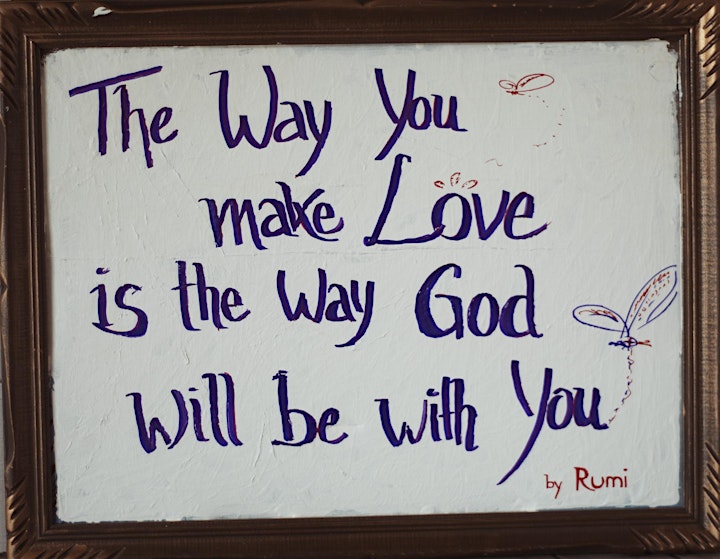 The Way You
make Love
is the way God
will be with You
by Rumi